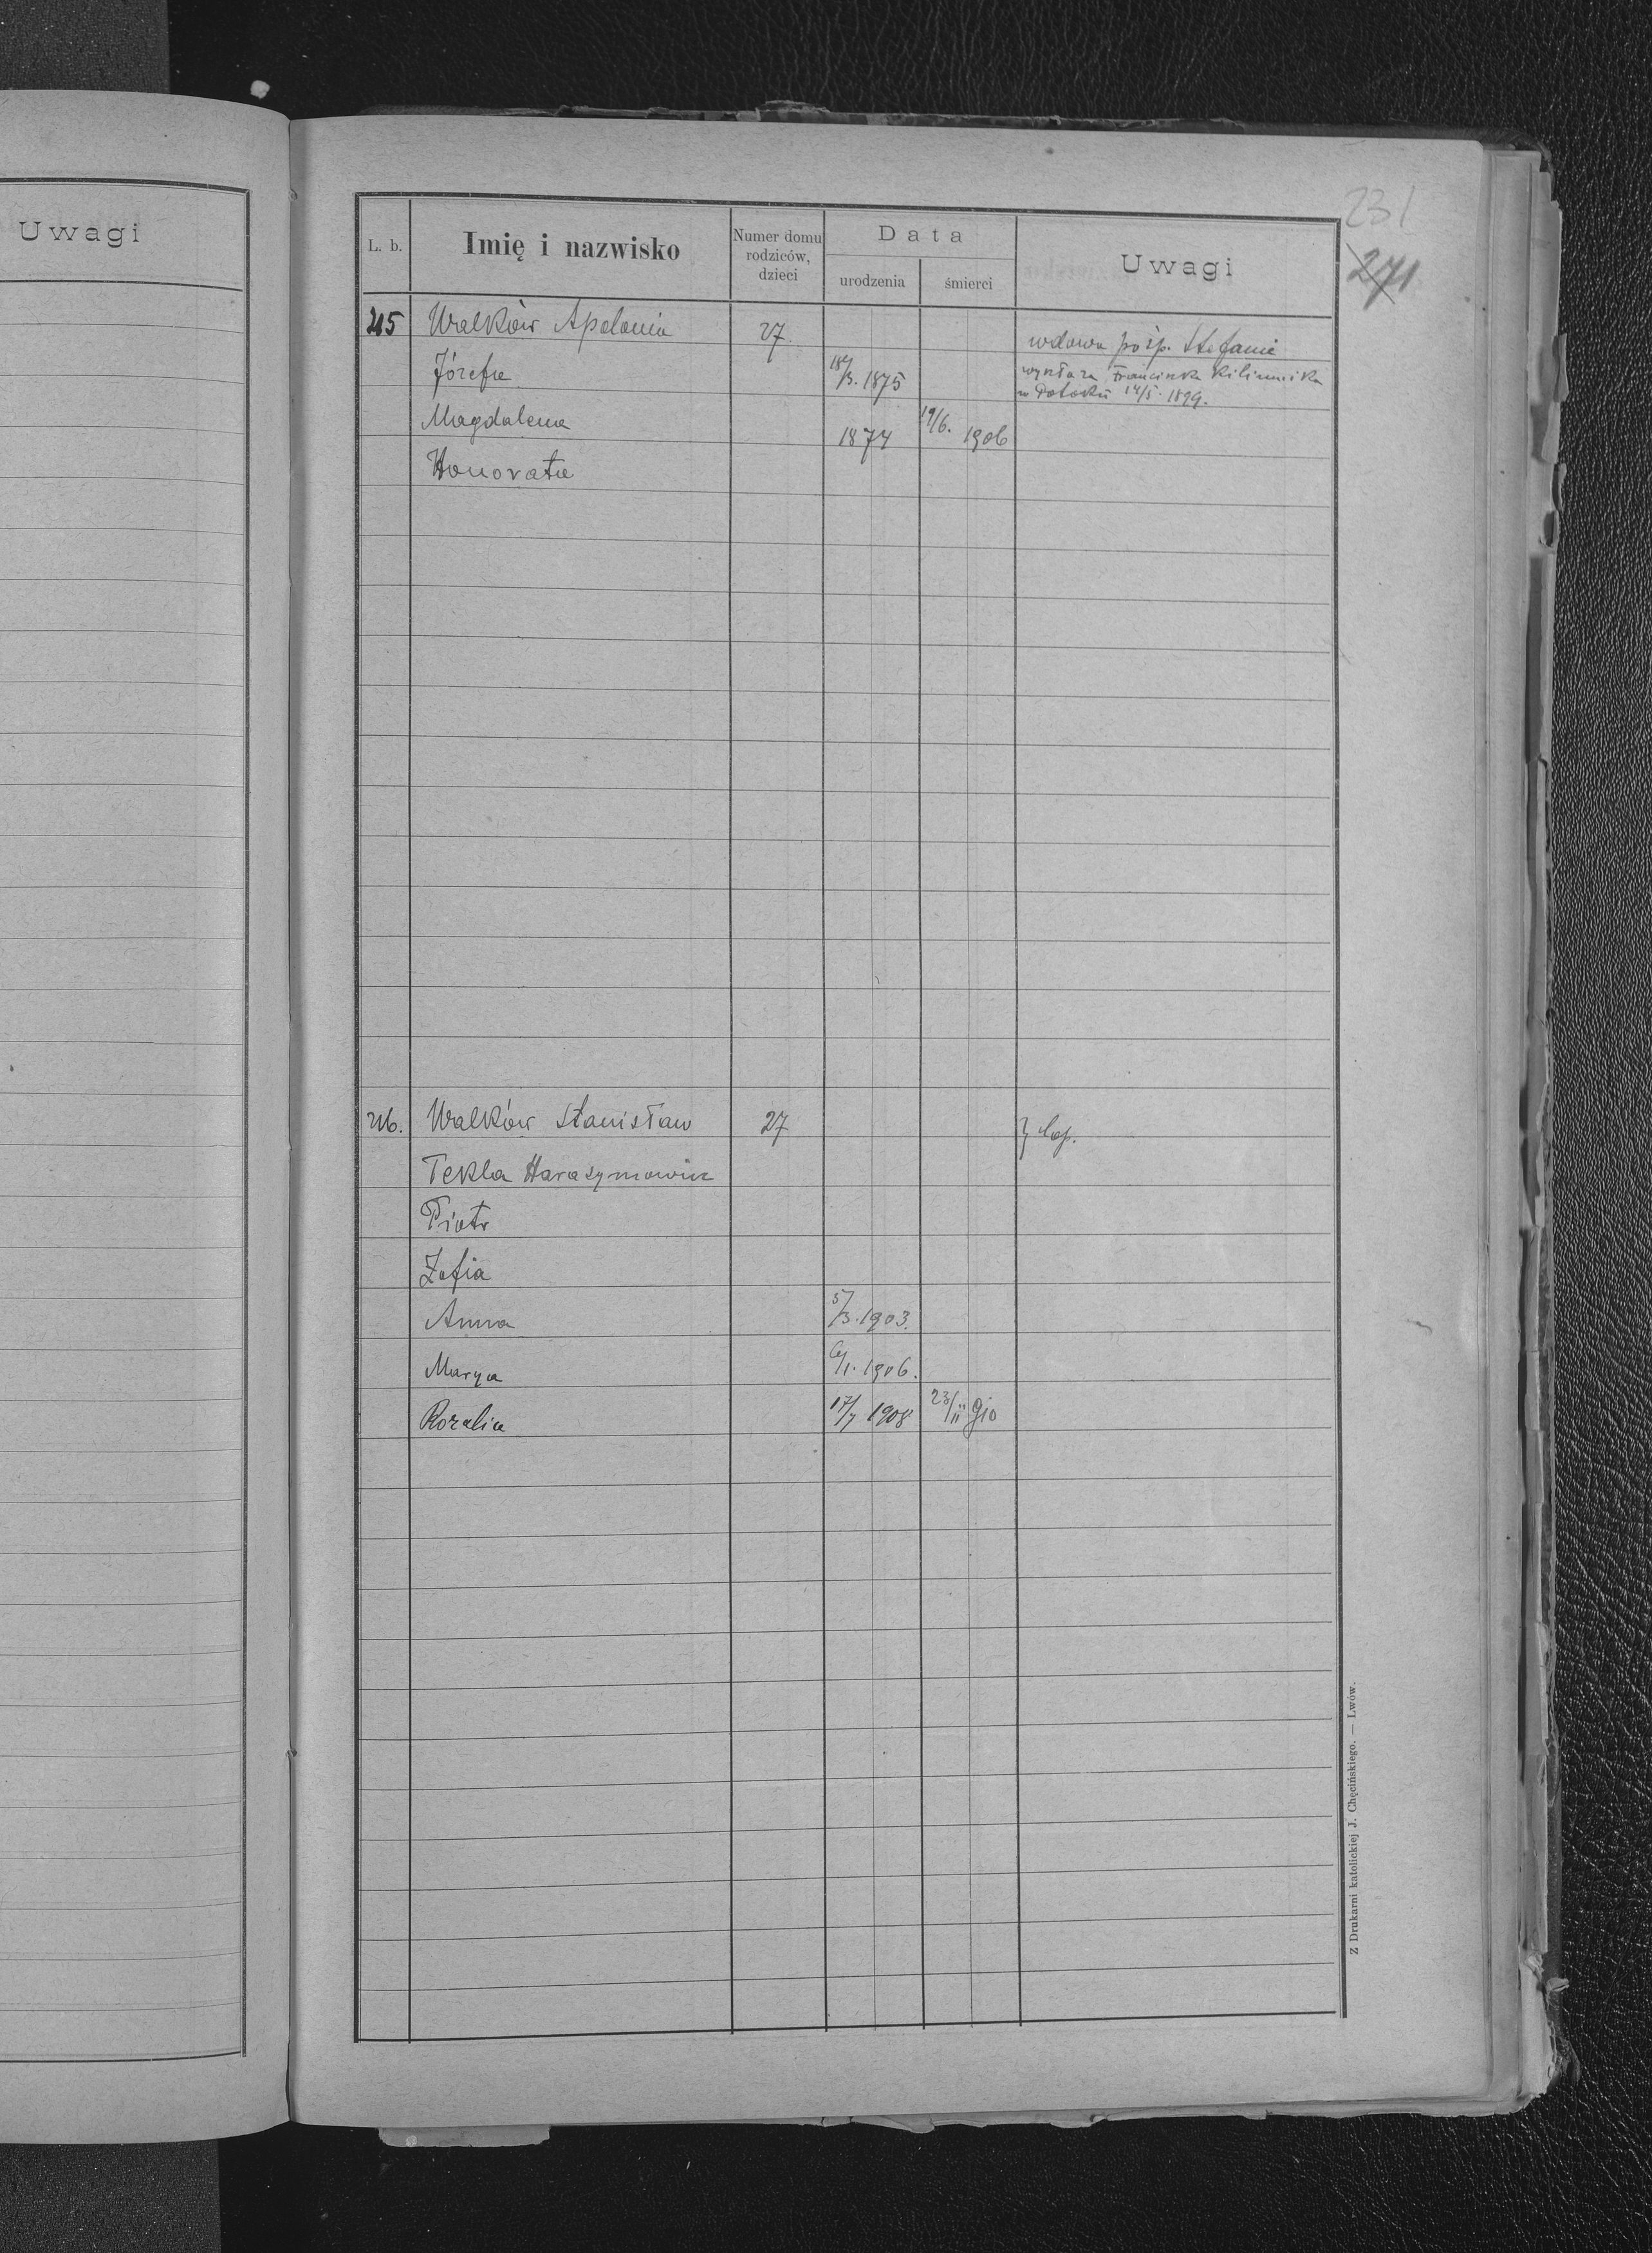 Uwagi
231
271
L. b.
Imię i nazwisko
Numer domu
rodziców,
dzieci
Data
urodzenia
śmierci
Uwagi
215 Walków Apolonia 27. wdowa po śp. Stefanie
Józefa 18/3. 1875 wyszła za Franciszka Kilimnika
w Potoku 14/5. 1899.
Magdalena 1874 19/6. 1906
Honorata
216. Walków Stanisław 27
Tekla Harasymowicz
Piotr
Zofia
Anna 5/3. 1903.
Marya 6/1. 1906.
Rozalia 17/7 1908 23/11 910
Z Drukarni katolickiej J. Chęcińskiego. — Lwów.